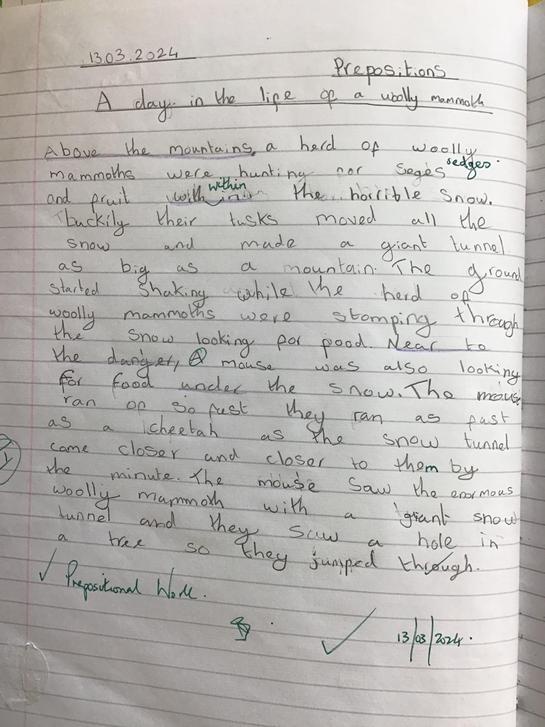 1303.2024
Prepositions
A day in the life of a woolly mammoth
Above the mountains, a herd of woolly
mammoths were hunting for seges sedges.
and fruit within within the horrible snow.
Luckily their tusks moved all the
snow and made a giant tunnel
as big as a mountain. The ground
started shaking while the herd of
woolly mammoths were stomping through
the snow looking for food. Near to
the danger, A mouse was also looking
for food under the snow. The mouse
ran of so fast they ran as fast
as a cheetah as the snow tunnel
came closer and closer to them by
the minute. The mouse saw the enormous
woolly mammoth with a giant snow
tunnel and they saw a hole in
a tree so they jumped through.
✓ Prepositional Work.
✓ 13/03/2024.